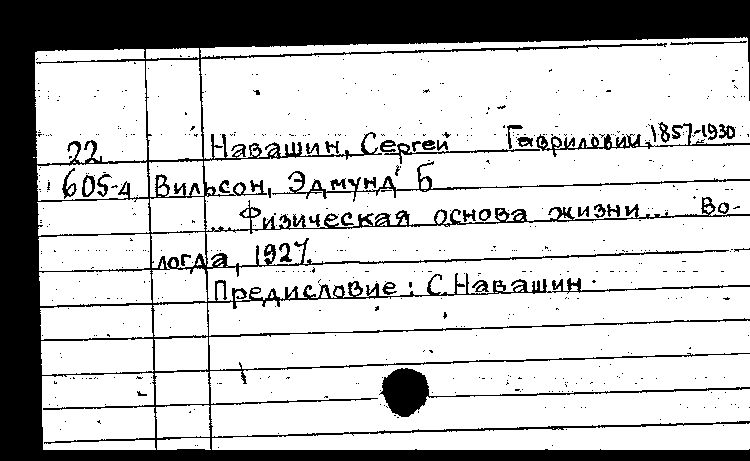 22 Навашин, Сергей Гаврилович, 1857-1930
605-4 Вильсон, Эдмунд Б
... Физическая основа жизни... Во-
логда, 1927.
Предисловие: С. Навашин